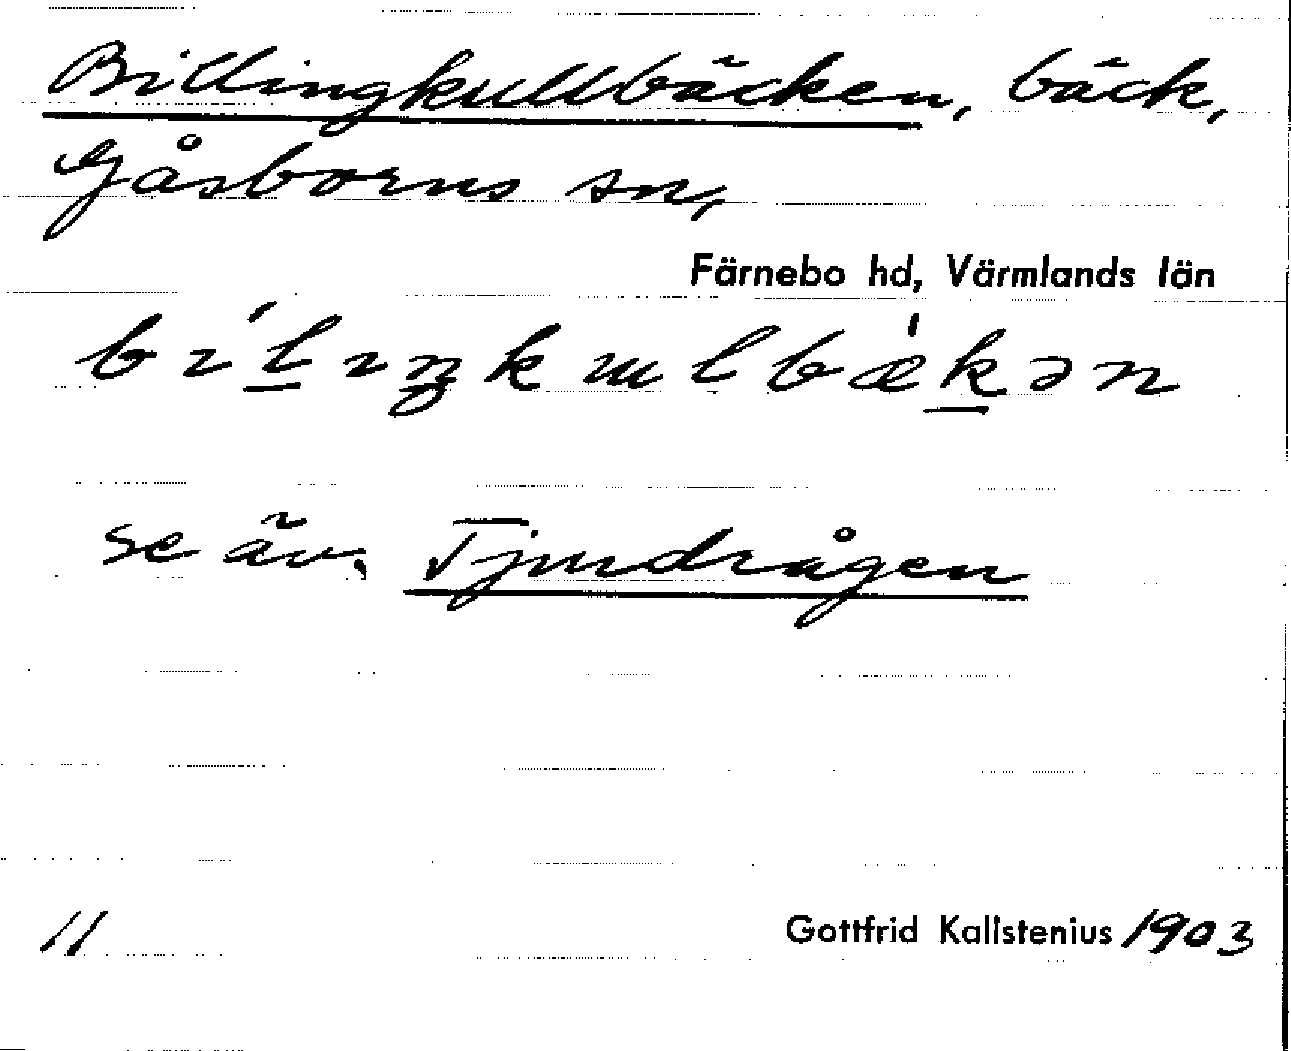 Billingkullbäcken, bäck,
Gåsborns sn,
Färnebo hd, Värmlands län
bíl̲ıŋkɯlbæ̍k̲ən
se äv. Tjurdrågen
11
Gottfrid Kallstenius 1903